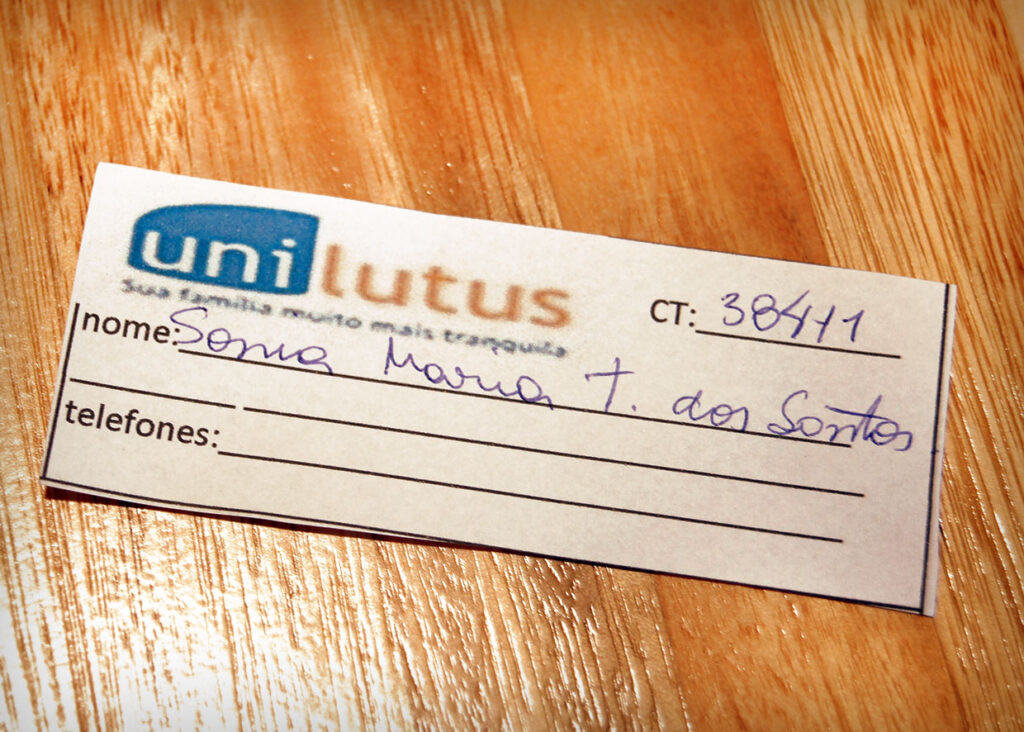 unilutus
Sua família muito mais tranquila
CT: 38411
nome: Sonia Maria T. dos Santos
telefones: